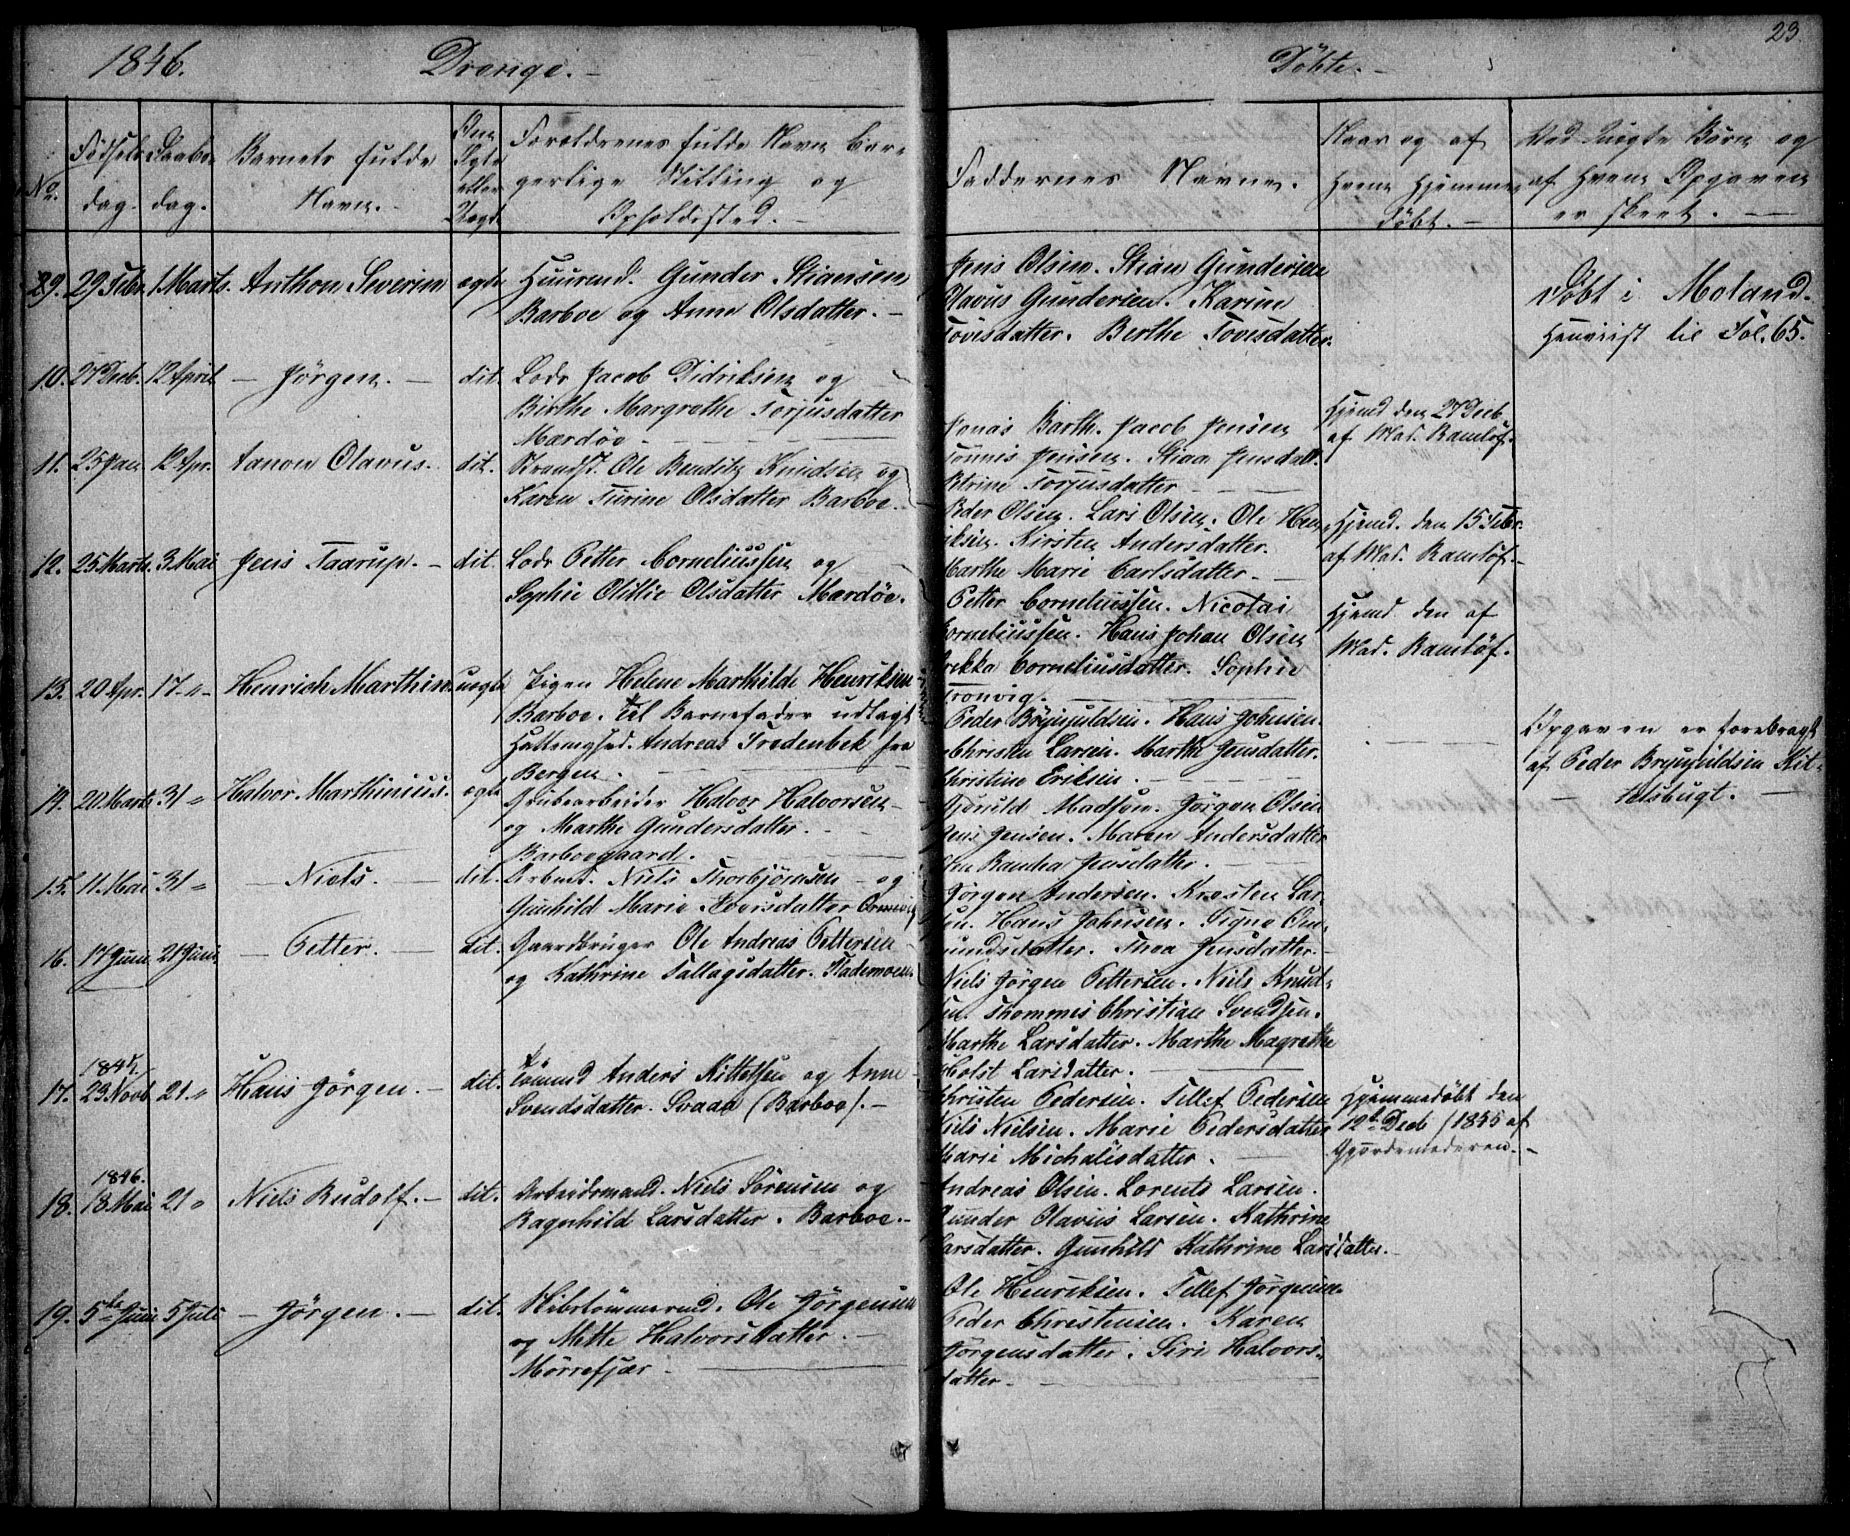 1846. Drenge.-
Döbte.- 23.
No. Födsels dag. Daabs dag. Barnets fulde Navn.- Om Ægte eller Uægt Forældrenes fulde Navn bor-
gerlige Stilling og
Opholdssted.-
Faddernes Navne.
Naar og af
hvem Hjemme
döbt.-
Ved Uægte Börn og
af hvem Opgaven
er skeet.-
29 Febr. 1 Marts. Anthon Severin ægte Huusmd. Gunder Stiansen
Barboe og Anne Olsdatter.-
Jens Olsen. Stian Gundersen
Olavus Gundersen. Karine
Tovisdatter. Berthe Tovisdatter.
Döbt i Moland.
Henviist til Fol. 65.
10. 27 Decb. 12 April. - Jörgen.- dit. Lods Jacob Didriksen og
Birthe Margrethe Torjusdatter
Mærdöe.-
Jonas Barth. Jacob Jensen
Tönnis Jensen. Stiaa Jensdatt.
Petrine Torjusdatter
Hjemd den 27 Decb
af Mad. Ramlöf.
11. 25 Jan. 12 Apr. Aanon Olavus. dit. Ole Bendits Knudsen og
Karen Turine Olsdatter Barboe.
Peder Olsen. Lars Olsen. Ole Hen-
riksen. Kirsten Andersdatter.
Marthe Marie Carlsdatter.-
Hjemd. den 15 Febr.
af Mad. Ramlöf.-
12. 25 Marts. 3 Mai Jens Taarup.- dit. Lods Petter Corneliussen og
Sophie Otillie Olsdatter Mærdöe.
Petter Corneliussen. Nicolai
Corneliussen. Hans Johan Olsen
Corneliusdatter. Sophie
Tronvig.
Hjemd den af
Mad. Ramlöf.
13. 20 Apr. 17 " - Henrich Marthin. uægte Pigen Helene Marthilde Henriksen
Barboe. Til Barnefader udlagt
Andreas Tredenbek fra
Bergen.-
Peder Brynjuldsen. Hans Johnsen.
Christen Larsen. Marthe Gundatter.
Christine Eriksen.-
Opgaven er forebragt
af Peder Brynjuldsen Kit-
telsbugt.-
14. 20 Marts 31 " Halvor Marthinius. ægte Grubearbeider Halvor Halvorsen
og Marthe Gundersdatter.
Barboegaard.
Gjeruld Madsen. Jörgen Olsen
Jens Jensen. Maren Andersdatter
Randia Jensdatter.
15. 11 Mai 31 " - Niels.- dit. Arbmd. Niels Thorbjörnsen - og
Gunhild Marie Iversdatter
Jörgen Andersen. Kresten Lar-
sen. Hans Johnsen. Signe Om-
undsdatter. Thea Jensdatter.
16. 17 Juni 21 Juni - Petter.- dit. Gaardbruger Ole Andreas Pettersen
og Kathrine Tallagsdatter.
Niels Jörgen Pettersen. Niels Knud-
sen. Thommes Christian Svendsen.
Marthe Larsdatter. Marthe Magrethe
Holst Larsdatter.-
1845.
17. 29 Novb 21 " Hans Jörgen.- dit. Tömmd Anders Kittelsen og Anne
Svendsdatter. Svaae (Barboe).-
Christen Pedersen. Tellef Pedersen
Niels Nielsen. Marie Pedersdatter
Marie Michalisdatter.
Hjemmedöbt den
12te Decb 1845 af
Gjordemoderen.-
1846.
18. 18 Mai 21 " Niels Rudolf.- dit. Arbeidsmand. Niels Sörensen og
Ragenhild Larsdatter. Barboe.-
Andreas Olsen. Lorents Larsen.
Gunder Olavus Larsen. Kathrine
Larsdatter. Gunhild Kathrine Larsdatter.-
19. 5te Juni 5 Juli - Jörgen.- dit. Skibstömmermd. Ole Jörgensen
og Mette Halvorsdatter.-
Mörrefjær.
Ole Henriksen. Tellef Jörgensen
Peder Christensen. Karen
Jörgensdatter. Siri Halvors-
datter.